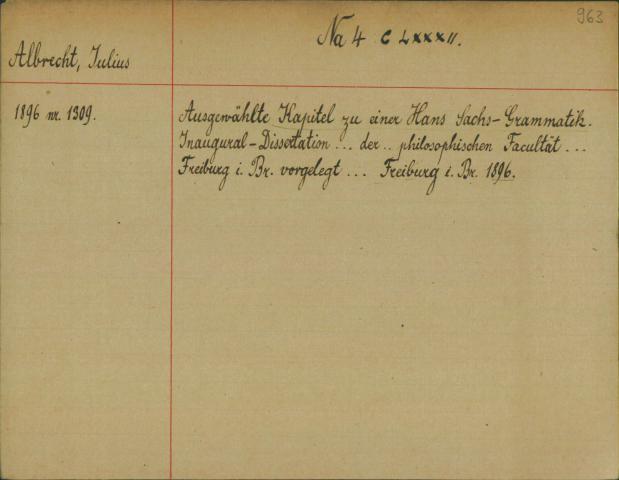 963
Na 4 C LXXXII.
Albrecht, Julius
1896 nr. 1309.
Ausgewählte Kapitel zu einer Hans Sachs-Grammatik.
Inaugural-Dissertation ... der .. philosophischen Facultät ...
Freiburg i. Br. vorgelegt ... Freiburg i. Br. 1896.